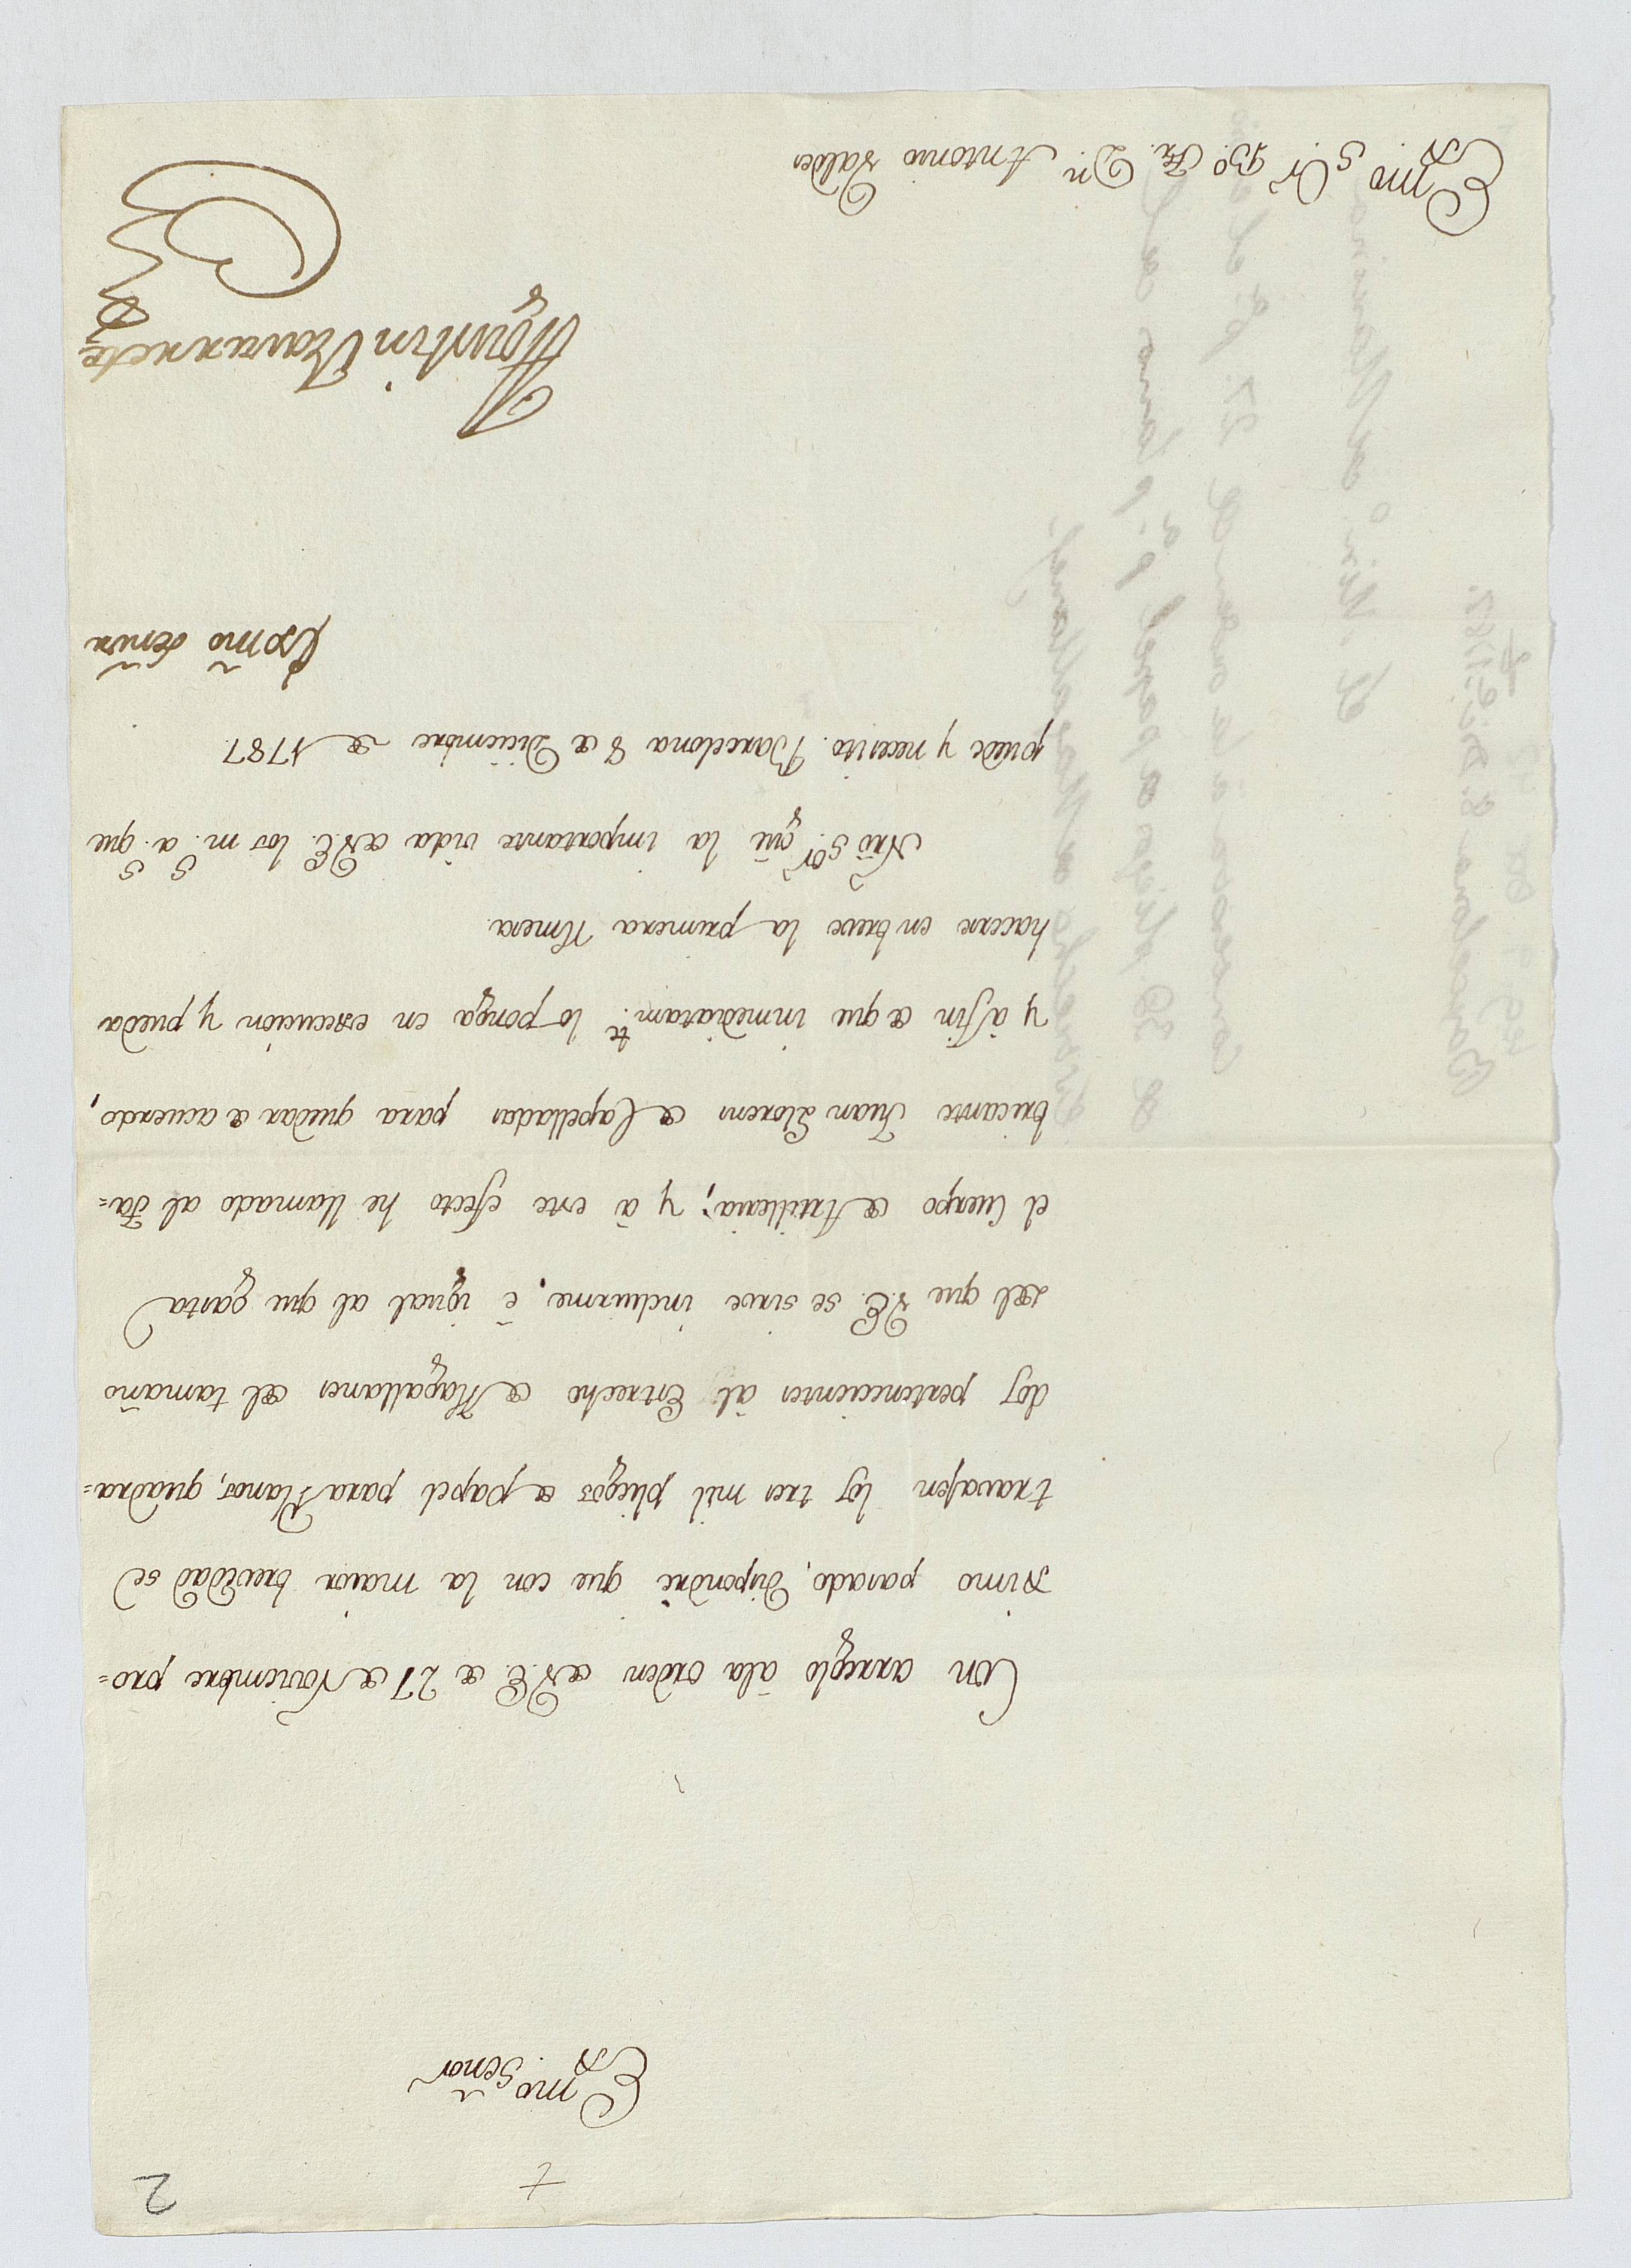 2
+
Exmo Señor
Con arreglo àla orden de V.E. de 27 de Noviembre pro=
ximo pasado, dispondrè que con la maior brevedad se
travajen los tres mil pliegos de papel para Planos, quadra=
dos pertenecientes àl Estrecho de Magallanes del tamaño
del que V.E. se sirve incluirme, è igual al que gasta
el Cuerpo de Artilleria; y à este efecto he llamado al Fa=
bricante Juan Llorens de Capelladas para quedar de acuerdo,
y àfin de que inmediatamte lo ponga en execucion y pueda
hacerse en breve la primera Rmesa.
Nrō Sor güe la importante vida de V.E. los ms. as. que
puede y necesito. Barcelona 8 de Diciembre de 1787.
Exmō Señor
Agustin Navarrete
Exmo Sor Bo Fr. Dn. Antonio Valdes